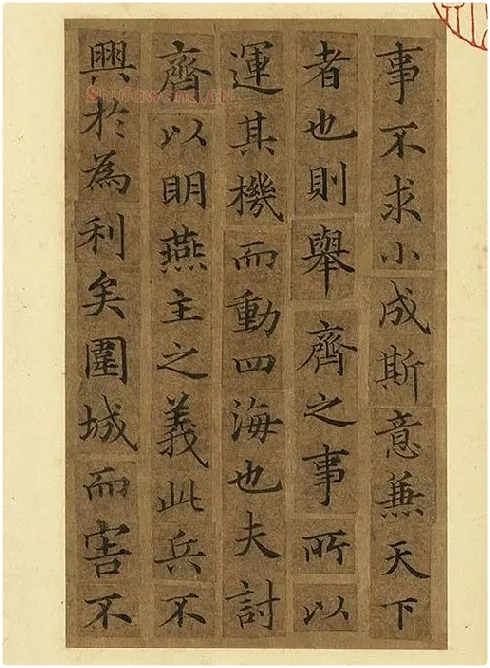 事不求小成斯意兼天下
者也則舉齊之事所以
運其機而動四海也夫討
齊以明燕主之義此兵不
興於為利矣圍城而害不
Shufawang.CN